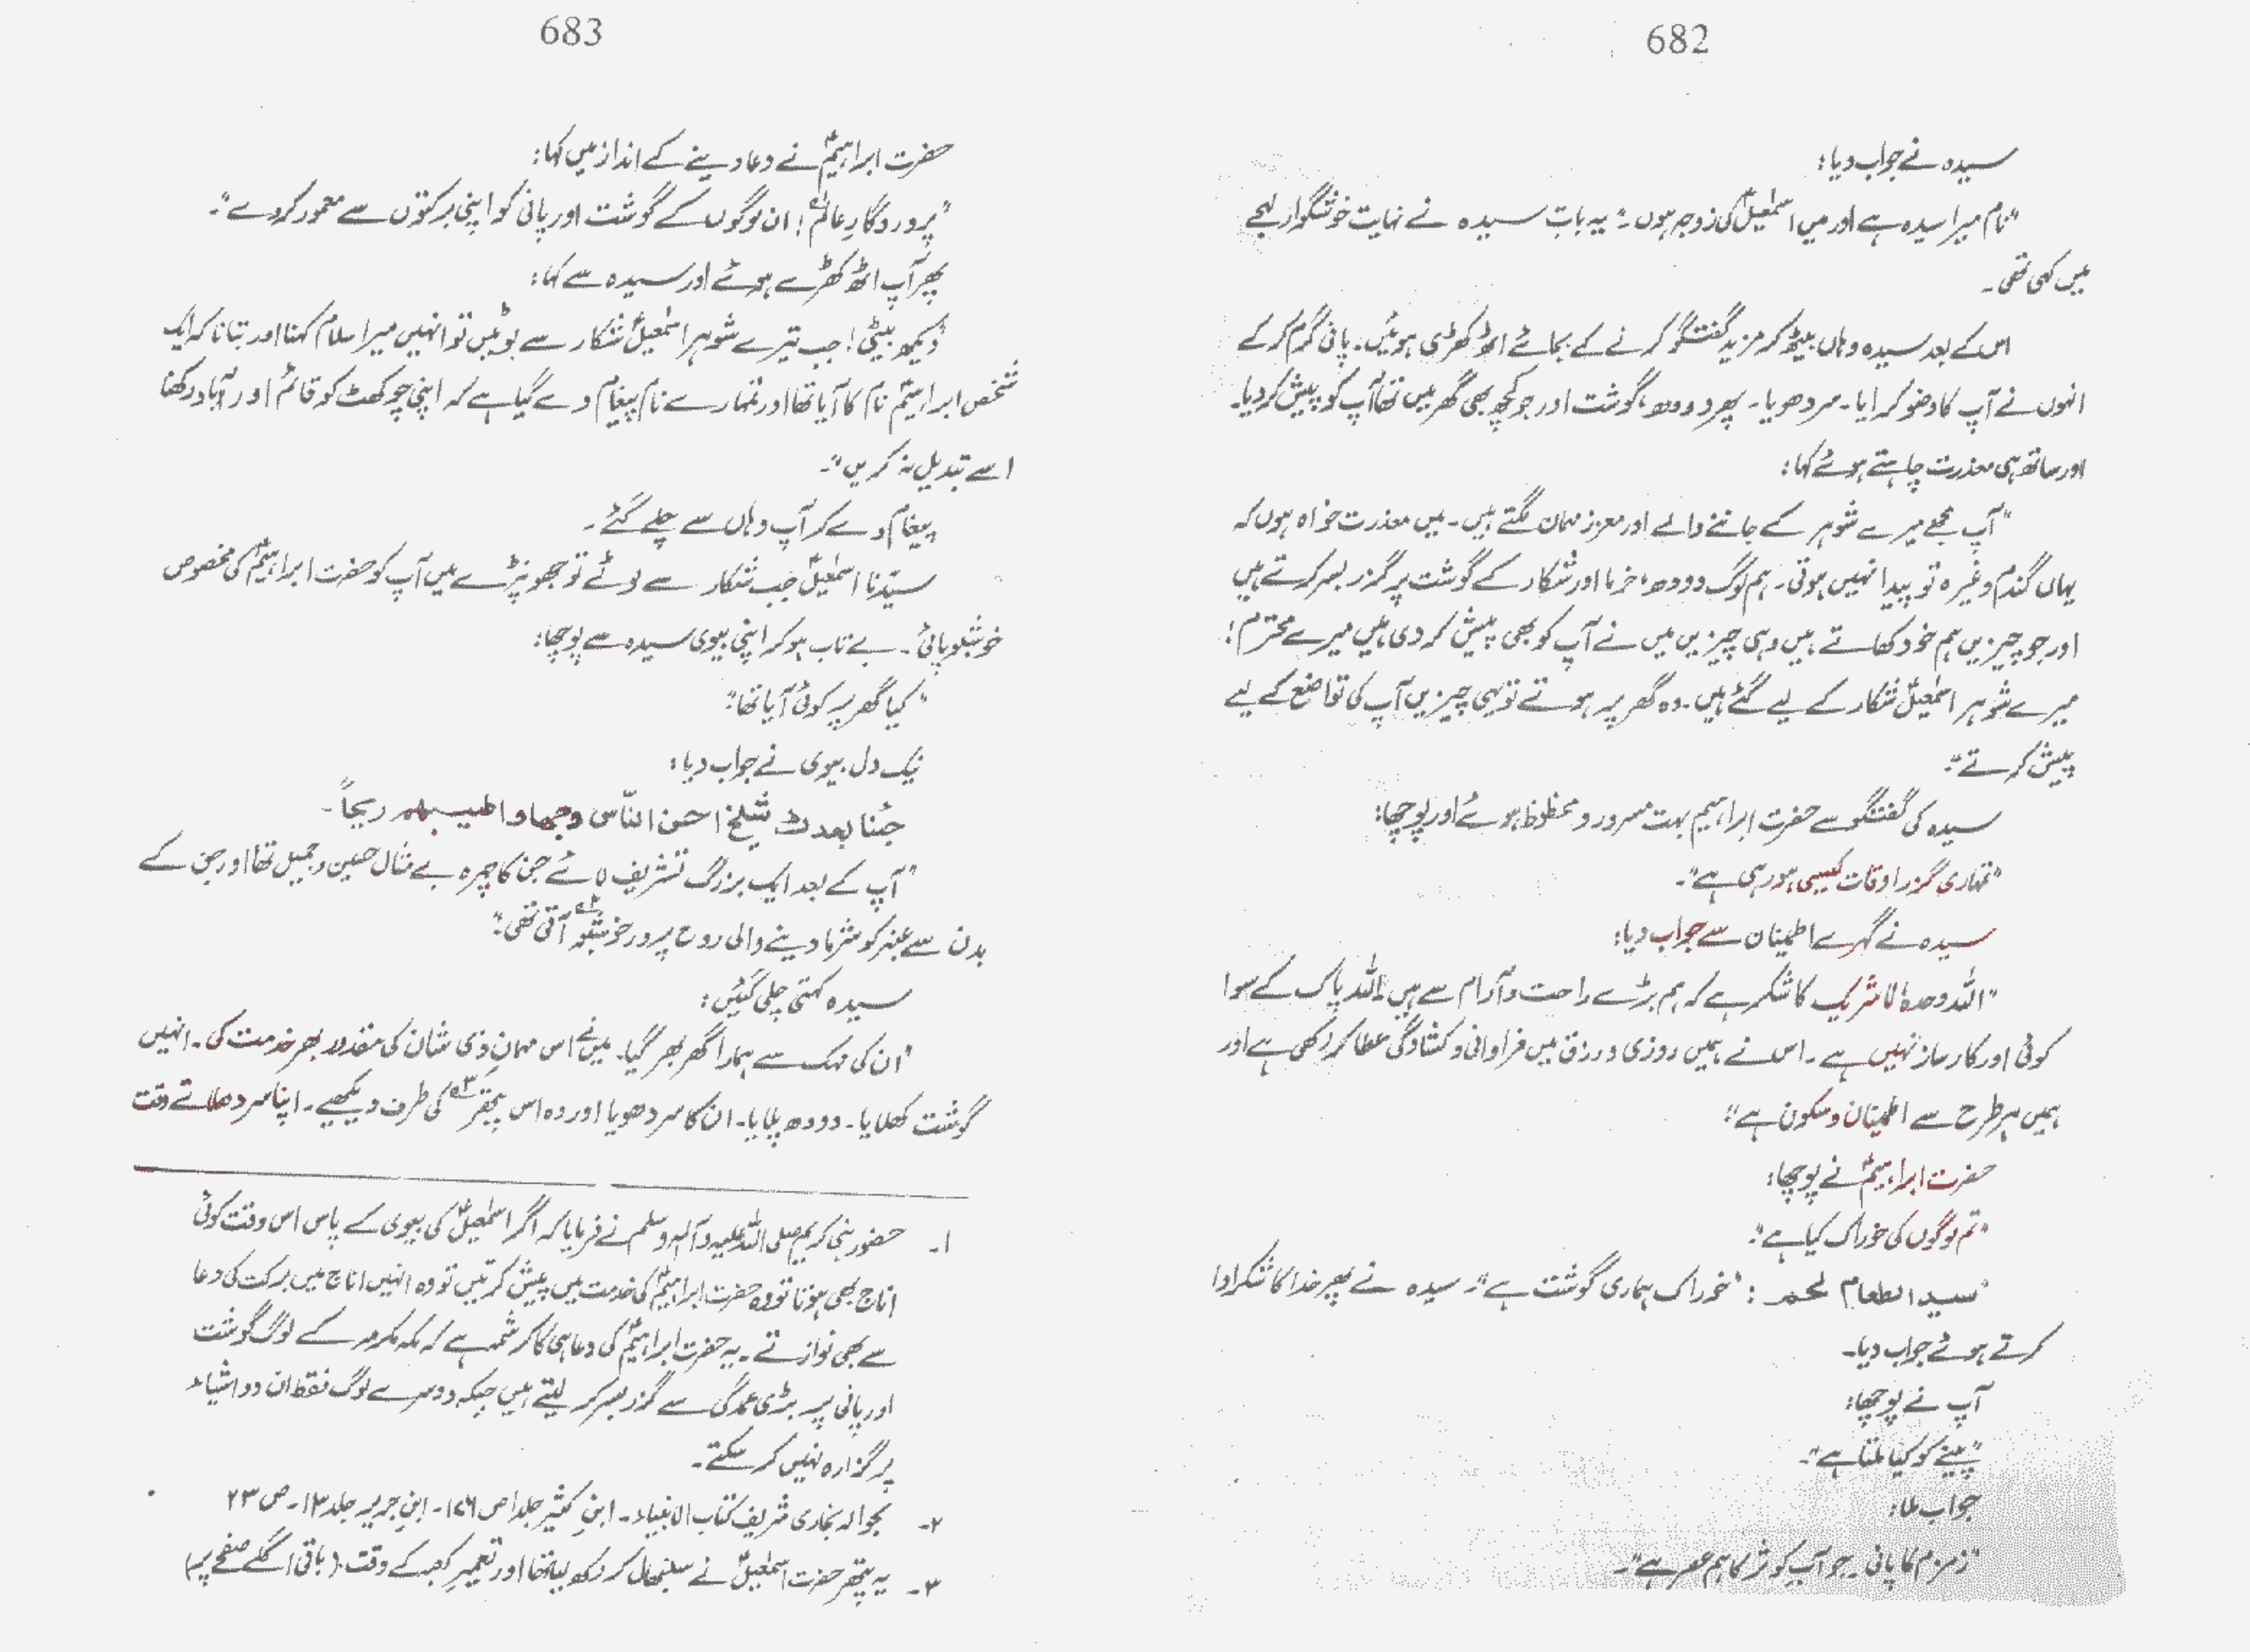 682
سیدہ نے جواب دیا:
"نام میرا سیدہ ہے اور میں اسمٰعیلؑ کی زوجہ ہوں۔" یہ بات سیدہ نے نہایت خوشگوار لہجے
میں کہی تھی۔
اس کے بعد سیدہ وہاں بیٹھ کر مزید گفتگو کرنے کے بجائے اٹھ کھڑی ہوئیں۔ پانی گرم کر کے
انہوں نے آپ کا وضو کرایا۔ سر دھویا۔ پھر دودھ، گوشت اور جو کچھ بھی گھر میں تھا آپ کو پیش کر دیا۔
اور ساتھ ہی معذرت چاہتے ہوئے کہا:
"آپ مجھے میرے شوہر کے جاننے والے اور معزز مہمان لگتے ہیں۔ میں معذرت خواہ ہوں کہ
یہاں گندم وغیرہ تو پیدا نہیں ہوتی۔ ہم لوگ دودھ، خرما اور شکار کے گوشت پر گزر بسر کرتے ہیں
اور جو چیزیں ہم خود کھاتے ہیں وہی چیزیں میں نے آپ کو بھی پیش کر دی ہیں میرے محترم!
میرے شوہر اسمٰعیلؑ شکار کے لیے گئے ہیں۔ وہ گھر پر ہوتے تو یہی چیزیں آپ کی تواضع کے لیے
پیش کرتے"۔
سیدہ کی گفتگو سے حضرت ابراہیم بہت مسرور و محظوظ ہوئے اور پوچھا:
"تمہاری گزر اوقات کیسی ہو رہی ہے"۔
سیدہ نے گہرے اطمینان سے جواب دیا:
"اللہ وحدہٗ لا شریک کا شکر ہے کہ ہم بڑے راحت و آرام سے ہیں اللہ پاک کے سوا
کوئی اور کارساز نہیں ہے۔ اس نے ہمیں روزی و رزق میں فراوانی و کشادگی عطا کر رکھی ہے اور
ہمیں ہر طرح سے اطمینان و سکون ہے"
حضرت ابراہیمؑ نے پوچھا:
"تم لوگوں کی خوراک کیا ہے"۔
"سید الطعام لحم: "خوراک ہماری گوشت ہے"۔ سیدہ نے پھر خدا کا شکر ادا
کرتے ہوئے جواب دیا۔
آپ نے پوچھا:
"پینے کو کیا ملتا ہے"۔
جواب ملا:
"زمزم کا پانی۔ جو آبِ کوثر کا ہم عصر ہے"۔
683
حضرت ابراہیمؑ نے دعا دینے کے انداز میں کہا:
"پروردگارِ عالم! ان لوگوں کے گوشت اور پانی کو اپنی برکتوں سے معمور کر دے"۔
پھر آپ اٹھ کھڑے ہوئے اور سیدہ سے کہا:
"دیکھ بیٹی! جب تیرے شوہر اسمٰعیلؑ شکار سے لوٹیں تو انہیں میرا سلام کہنا اور بتانا کہ ایک
شخص ابراہیمؑ نام کا آیا تھا اور تمہارے نام پیغام دے گیا ہے کہ اپنی چوکھٹ کو قائم اور آباد رکھنا
اسے تبدیل نہ کریں"۔
پیغام دے کر آپ وہاں سے چلے گئے۔
سیدنا اسمٰعیلؑ جب شکار سے لوٹے تو جھونپڑے میں آپ کو حضرت ابراہیمؑ کی مخصوص
خوشبو پائی۔ بے تاب ہو کر اپنی بیوی سیدہ سے پوچھا:
"کیا گھر پر کوئی آیا تھا"
نیک دل بیوی نے جواب دیا:
جئنا بعدک شیخ احسن النّاس وجھا و اطیبھم ریحاً۔
"آپ کے بعد ایک بزرگ تشریف لائے جن کا چہرہ بے مثال حسین و جمیل تھا اور جن کے
بدن سے عنبر کو شرما دینے والی روح پرور خوشبو۲ آتی تھی"۔
سیدہ کہتی چلی گئیں:
"ان کی مہک سے ہمارا گھر بھر گیا۔ میں نے اس مہمانِ ذی شان کی مقدور بھر خدمت کی۔ انہیں
گوشت کھلایا۔ دودھ پلایا۔ ان کا سر دھویا اور وہ اس پتھر۳ کی طرف دیکھیے۔ اپنا سر دھلاتے وقت
۱۔ حضور نبی کریم صلی اللہ علیہ وآلہ وسلم نے فرمایا کہ اگر اسمٰعیلؑ کی بیوی کے پاس اس وقت کوئی
اناج بھی ہوتا تو وہ حضرت ابراہیمؑ کی خدمت میں پیش کرتیں تو وہ انہیں اناج میں برکت کی دعا
سے بھی نوازتے۔ یہ حضرت ابراہیمؑ کی دعا ہی کا کرشمہ ہے کہ مکہ مکرمہ کے لوگ گوشت
اور پانی پر بڑی عمدگی سے گزر بسر کر لیتے ہیں جبکہ دوسرے لوگ فقط ان دو اشیاء
پر گزارہ نہیں کر سکتے۔
۲۔ بحوالہ بخاری شریف کتاب الانبیاء۔ ابنِ کثیر جلد ۱ ص ۱۷۶۔ ابنِ جریر جلد ۱۳۔ ص ۲۳
۳۔ یہ پتھر حضرت اسمٰعیلؑ نے سنبھال کر رکھ لیا تھا اور تعمیرِ کعبہ کے وقت (باقی اگلے صفحے پر)